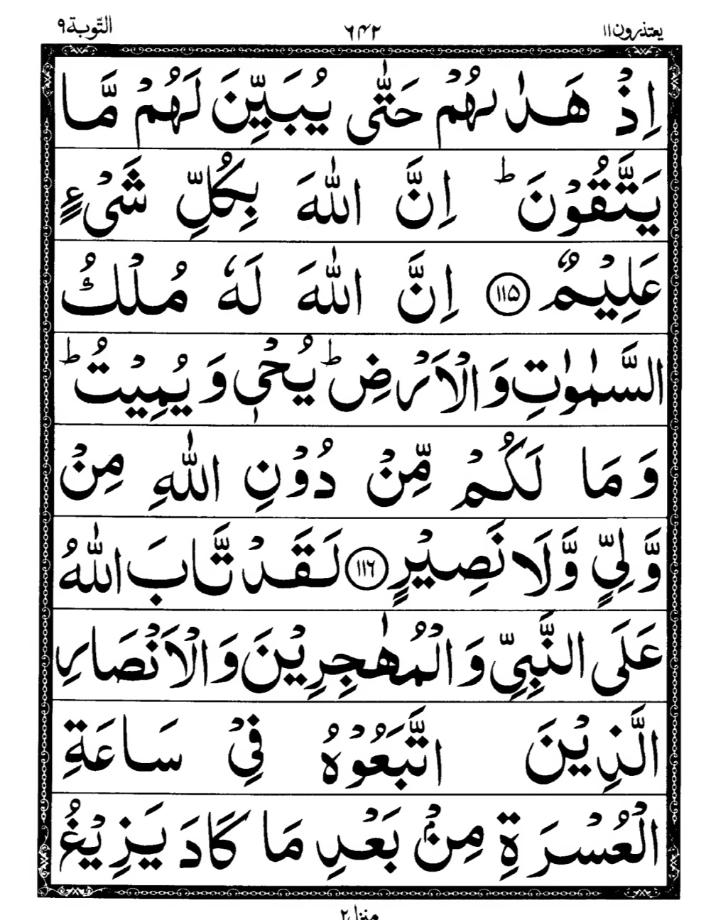 يعتذرون١١ ٦٤٢ التّوبة٩
اِذۡ هَدٰٮهُمۡ حَتّٰى يُبَيِّنَ لَهُمۡ مَّا
يَتَّقُوۡنَ ؕ اِنَّ اللّٰهَ بِكُلِّ شَىۡءٍ
عَلِيۡمٌ ﴿۱۱۵﴾ اِنَّ اللّٰهَ لَهٗ مُلۡكُ
السَّمٰوٰتِ وَالۡاَرۡضِ ؕ يُحۡىٖ وَيُمِيۡتُ ؕ
وَمَا لَكُمۡ مِّنۡ دُوۡنِ اللّٰهِ مِنۡ
وَّلِىٍّ وَّلَا نَصِيۡرٍ ﴿۱۱۶﴾ لَـقَدۡ تَّابَ اللّٰهُ
عَلَى النَّبِىِّ وَالۡمُهٰجِرِيۡنَ وَالۡاَنۡصَارِ
الَّذِيۡنَ اتَّبَعُوۡهُ فِىۡ سَاعَةِ
الۡعُسۡرَةِ مِنۡۢ بَعۡدِ مَا كَادَ يَزِيۡغُ
منزل٢